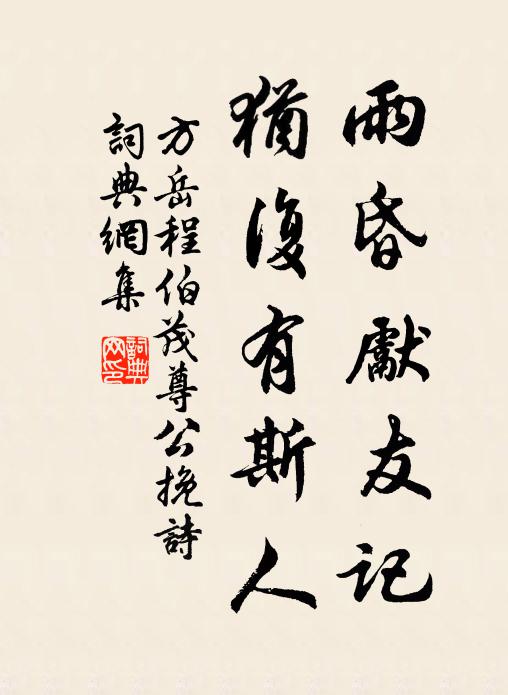 雨昏獻友記
猶復有斯人
方岳程伯茂尊公挽詩
詞典網集
詞典網印